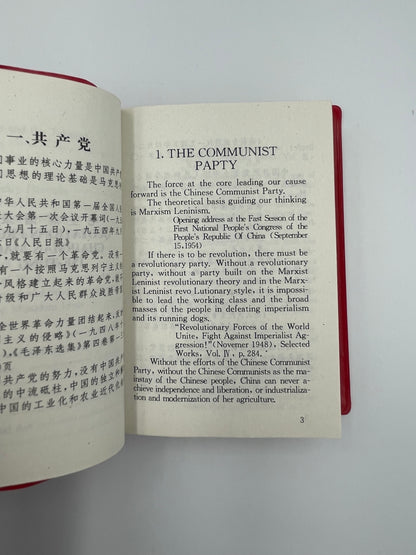 一、共产党
事业的核心力量是中国共产
思想的理论基础是马克思
华人民共和国第一届全国人
大会第一次会议开幕词(一九
九月十五日),一九五四年九
日《人民日报》
,就要有一个革命党。没有
有一个按照马克思列宁主义
风格建立起来的革命党,
级和广大人民群众战胜帝
全世界革命力量团结起来,反
主义的侵略》(一九四八年
),《毛泽东选集》第四卷第一
页
共产党的努力,没有中国共
的中流砥柱,中国的独立和
中国的工业化和农业近代化
1. THE COMMUNIST
PAPTY
The force at the core leading our cause
forward is the Chinese Communist Party.
The theoretical basis guiding our thinking
is Marxism Leninism.
Opening address at the Fast Sesson of the
First National People's Congress of the
People's Republic Of China (September
15,1954)
If there is to be revolution, there must be
a revolutionary party. Without a revolutionary
party, without a party built on the Marxist
Leninist revolutionary theory and in the Marx-
ist Leninist revo Lutionary style, it is impossi-
ble to lead the working class and the broad
masses of the people in defeating imperialism
and its running dogs.
"Revolutionary Forces of the World
Unite, Fight Against Imperialist Ag-
gression!"(Novemer 1948), Selected
Works, Vol. Ⅳ, p. 284.
Without the efforts of the Chinese Communist
Party, without the Chinese Communists as the ma-
instay of the Chinese people, China can never a-
chieve independence and liberation, or industrializa-
ation and modernization of her agriculture.
3